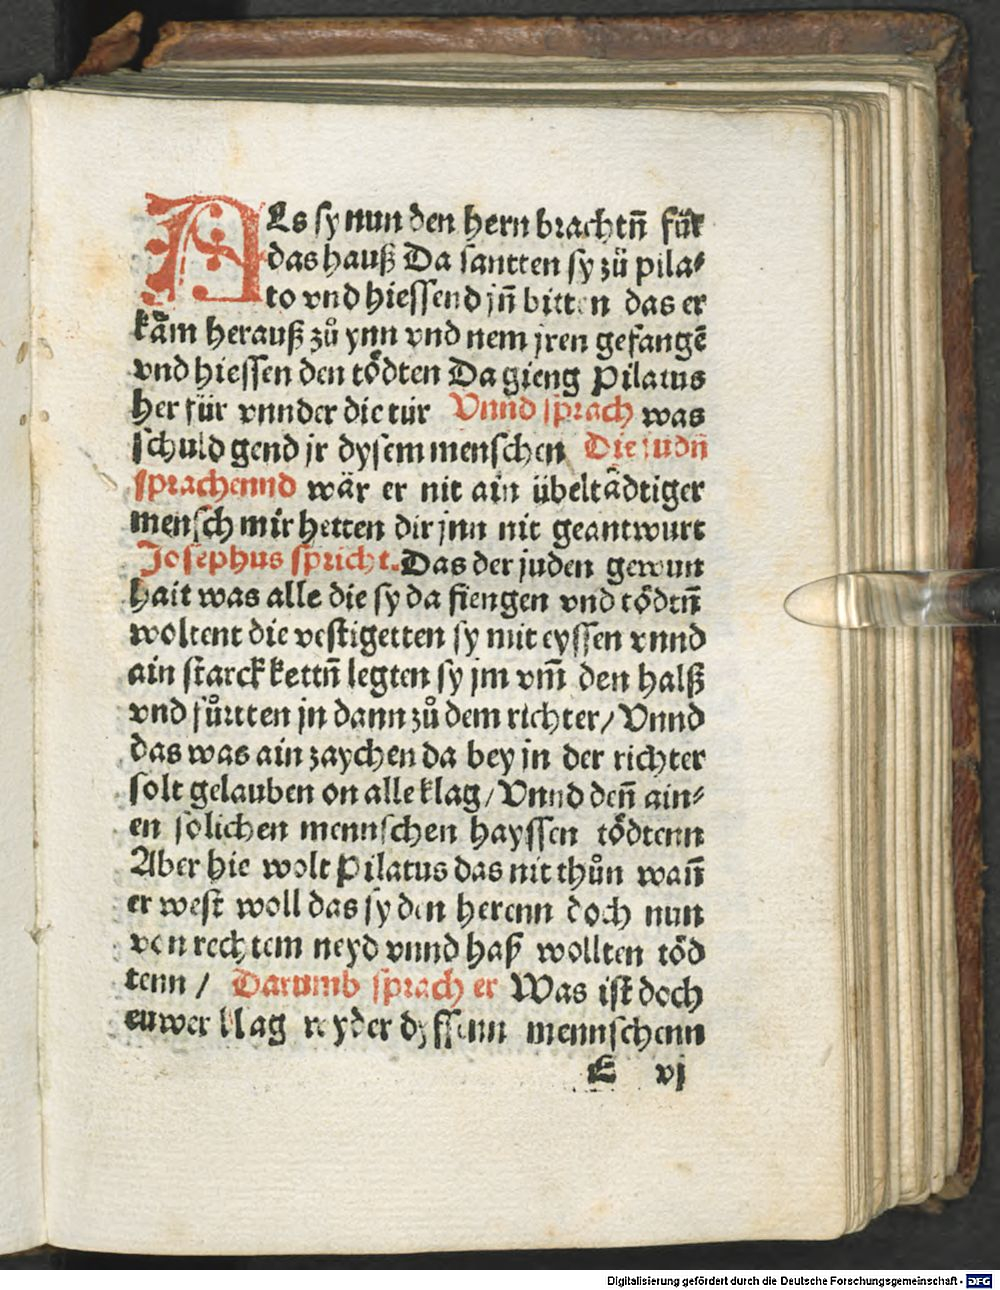 ALs sy nun den hern brachtn̄ für
das hauß Da santten sy zů pila⸗
to vnd hiessend jn̄ bitten das er
kåm herauß zů ynn vnd nem jren gefangē
vnd hiessen den tödten Da gieng Pilatus
her für vnnder die tür Vnnd sprach was
schuld gend jr dysem menschen Die judn̄
sprachennd wår er nit ain übeltådtiger
mensch mir hetten dir jnn nit geantwurt
Josephus spricht. Das der juden gewun
hait was alle die sy da fiengen vnd tödtn̄
woltent die vestigetten sy mit eyssen vnnd
ain starck kettn̄ legten sy jm vm̄ den halß
vnd fůrtten jn dann zů dem richter / Vnnd
das was ain zaychen da bey jn der richter
solt gelauben on alle klag / Vnnd den̄ ain⸗
en solichen mennschen hayssen tödtenn
Aber hie wolt Pilatus das nit thůn wan̄
er west woll das sy den herenn doch nun
von rechtem neyd vnnd haß wollten töd
tenn / Darumb sprach er Was ist doch
euwer klag wyder dyssenn mennschenn
E vj
Digitalisierung gefördert durch die Deutsche Forschungsgemeinschaft - DFG